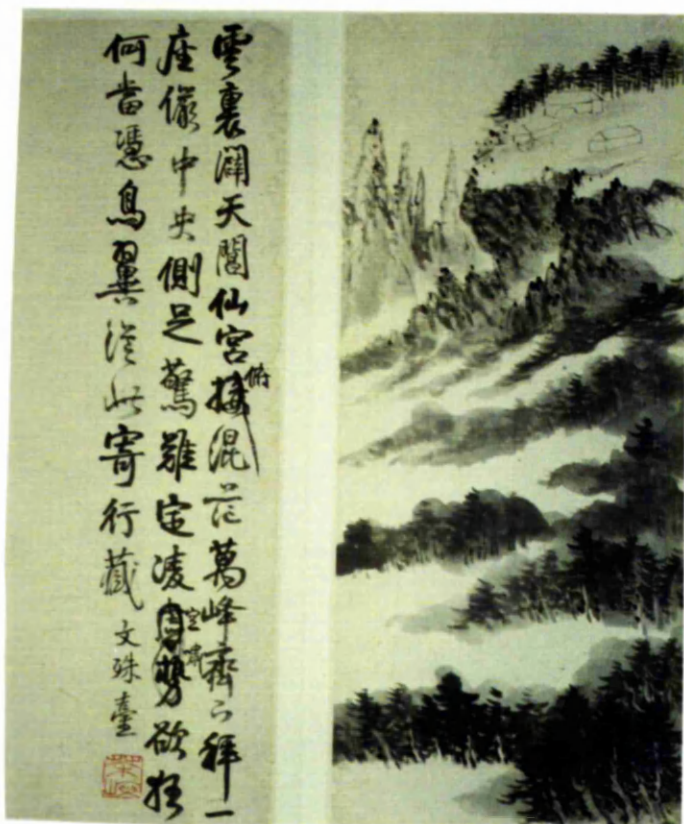 雲裏闢天閶仙宮俯混茫萬峰齊下拜一
座儼中央側足驚難定凌空欲狂
何當憑鳥翼從此寄行藏 文殊臺